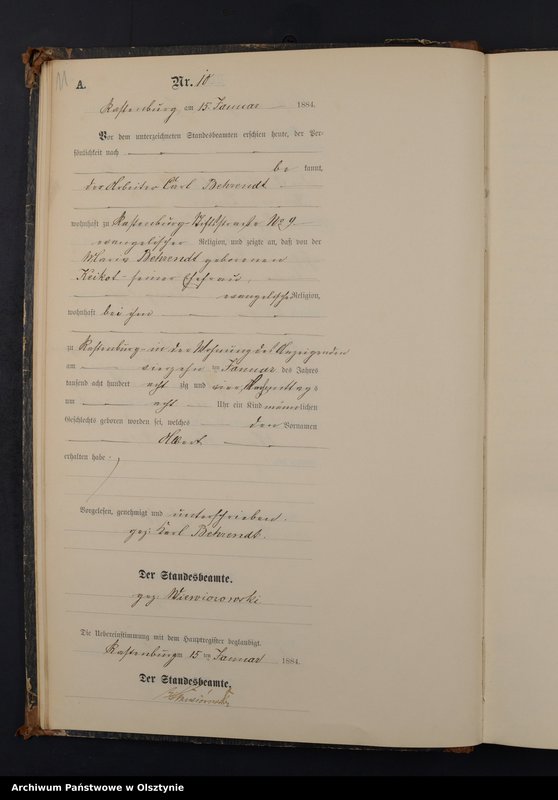 11
A.
Nr. 10
Rastenburg, am 15 Januar 1884.
Vor dem unterzeichneten Standesbeamten erschien heute, der Per-
sönlichkeit nach
be kannt,
der Arbeiter Carl Behrendt
wohnhaft zu Rastenburg No 9
evangelischer Religion, und zeigte an, daß von der
Maria Behrendt geborenen
seiner Ehefrau,
evangelischer Religion,
wohnhaft bei ihm
zu Rastenburg in der Wohnung des Anzeigenden
am vierzehn ten Januar des Jahres
tausend acht hundert acht zig und vier, mittags
um acht Uhr ein Kind männlichen
Geschlechts geboren worden sei, welches den Vornamen
Albert
erhalten habe
Vorgelesen, genehmigt und unterschrieben.
gez. Karl Behrendt.
Der Standesbeamte.
gez. Wiewiorowski
Die Uebereinstimmung mit dem Hauptregister beglaubigt.
Rastenburg am 15 ten Januar 1884.
Der Standesbeamte.
Archiwum Państwowe w Olsztynie